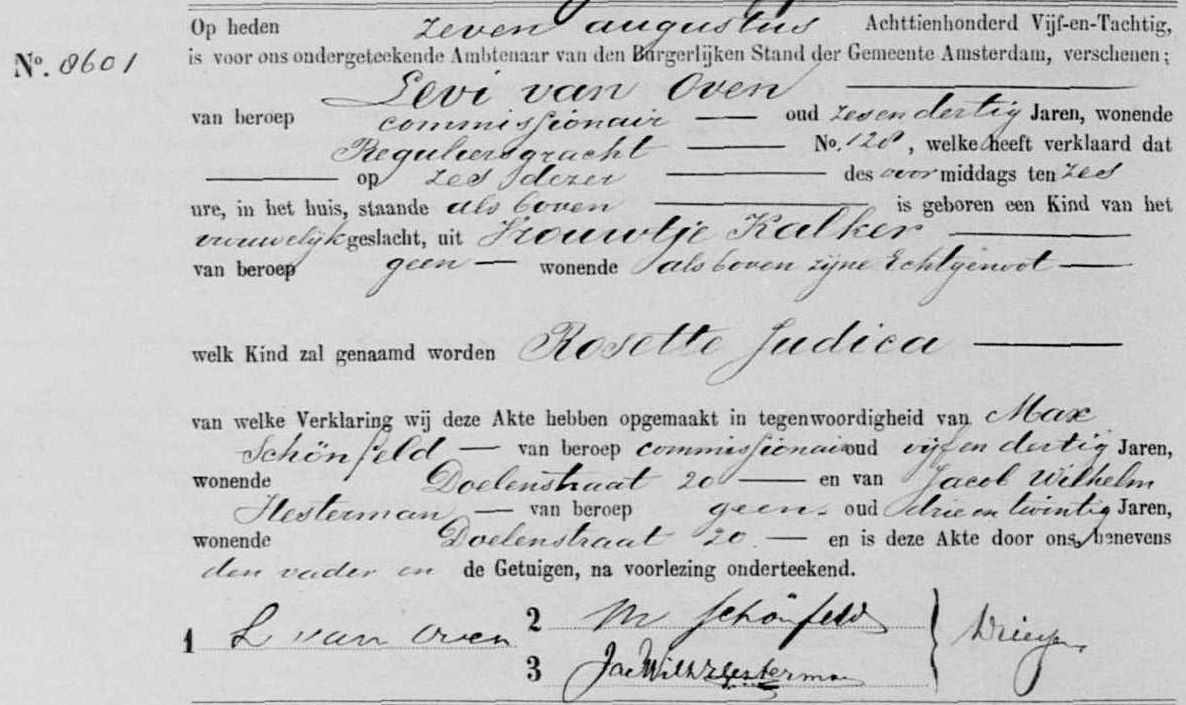 Op heden zeven augustus Achttienhonderd Vijf-en-Tachtig,
Nº. 8601
is voor ons ondergeteekende Ambtenaar van den Burgerlijken Stand der Gemeente Amsterdam, verschenen;
Levi van Oven
van beroep commissionair oud zesendertig Jaren, wonende
Reguliersgracht No. 128, welke heeft verklaard dat
op zes dezer des voormiddags ten zes
ure, in het huis, staande als boven is geboren een Kind van het
vrouwelijk geslacht, uit Vrouwtje Kalker
van beroep geen wonende als boven zijne Echtgenoot
welk Kind zal genaamd worden Rosette Judica
van welke Verklaring wij deze Akte hebben opgemaakt in tegenwoordigheid van Max
Schönfeld van beroep commissionair oud vijfendertig Jaren,
wonende Doelenstraat 20 en van Jacob Wilhelm
Hesterman van beroep geen oud drieentwintig Jaren,
wonende Doelenstraat 20 en is deze Akte door ons, benevens
den vader en de Getuigen, na voorlezing onderteekend.
1 L van Oven 2 M Schönfeld
3 Jac Wilh Hesterman